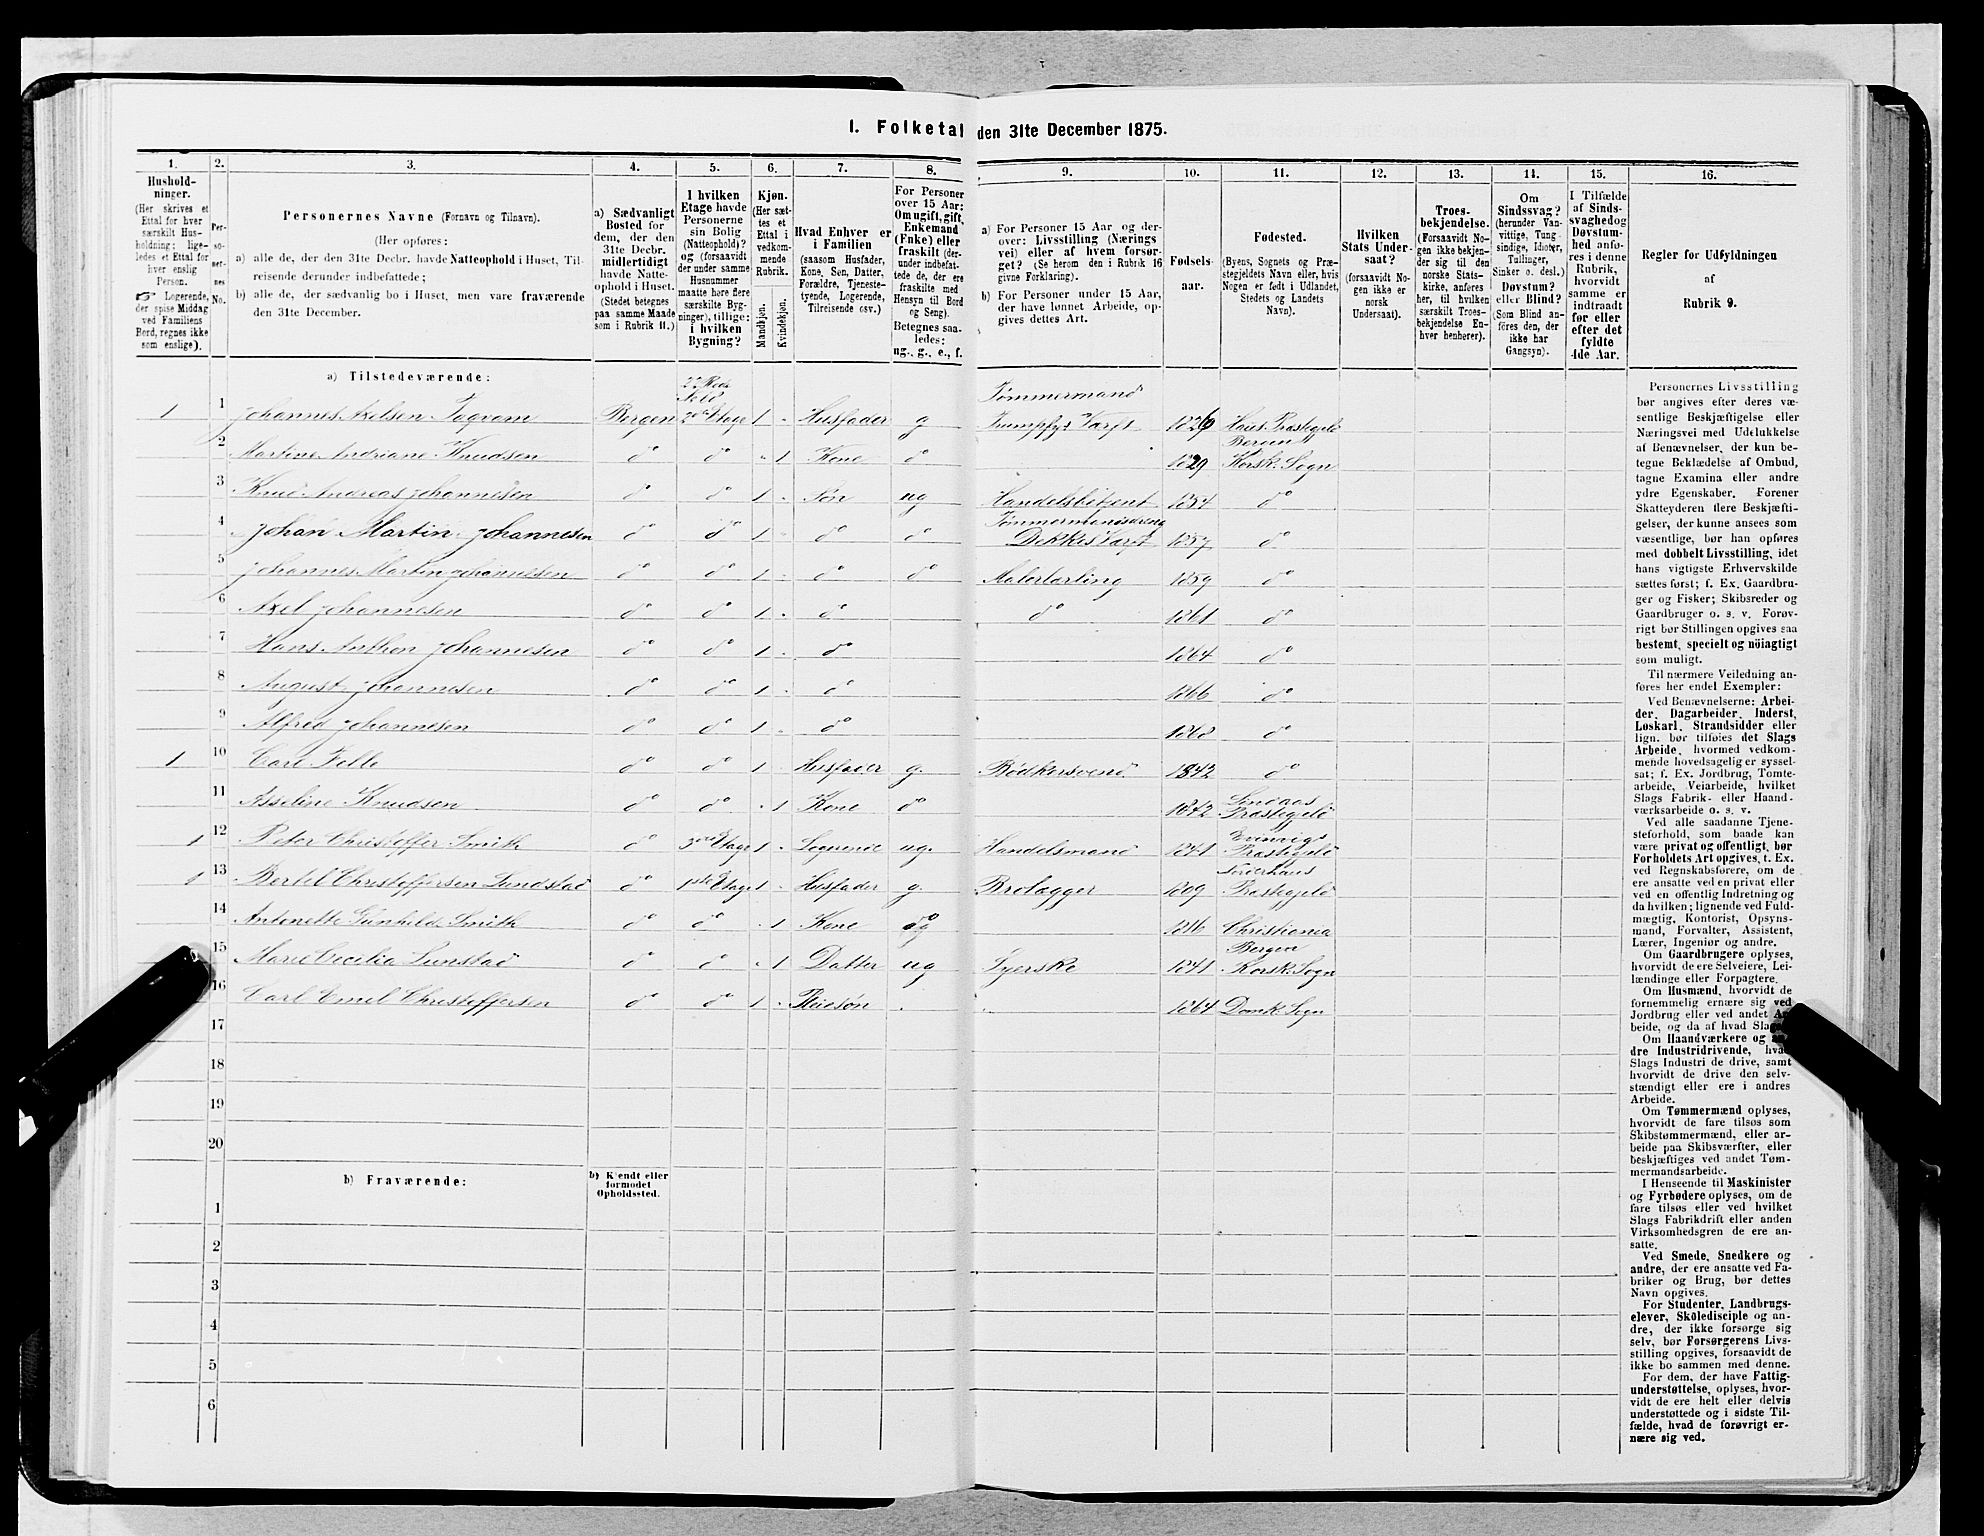 I. Folketal den 31te December 1875.
1. 2. 3. 4. 5. 6. 7. 8. 9. 10. 11. 12. 13. 14. 15. 16.
Hushold-
ninger.
(Her skrives et
Ettal for hver
særskilt Hus-
holdning; lige-
ledes et Ettal for
hver enslig
Person.
☞ Logerende,
der spise Middag
ved Familiens
Bord, regnes ikke
som enslige).
Per-
so-
ner-
nes
No.
Personernes Navne (Fornavn og Tilnavn).
(Her opføres:
a) alle de, der den 31te Decbr. havde Natteophold i Huset, Til-
reisende derunder indbefattede;
b) alle de, der sædvanlig bo i Huset, men vare fraværende
den 31te December.
a) Sædvanligt
Bosted for
dem, der den
31te Decbr.
midlertidigt
havde Natte-
ophold i Huset.
(Stedet betegnes
paa samme Maade
som i Rubrik 11.)
I hvilken
Etage havde
Personerne
sin Bolig
(Natteophold)?
og (forsaavidt
der under samme
Husnummer
maatte høre flere
særskilte Byg-
ninger), tillige:
i hvilken
Bygning?
Kjøn.
(Her sæt-
tes et
Ettal i
vedkom-
mende
Rubrik.
Mandkjøn.
Kvindekjøn.
Hvad Enhver er
i Familien
(saasom Husfader,
Kone, Søn, Datter,
Forældre, Tjeneste-
tyende, Logerende,
Tilreisende osv.)
For Personer
over 15 Aar:
Om ugift, gift,
Enkemand
(Enke) eller
fraskilt (der-
under indbefat-
tede de, der ere
fraskilte med
Hensyn til Bord
og Seng).
Betegnes saa-
ledes:
ug., g., e., f.
a) For Personer 15 Aar og der-
over: Livsstilling (Nærings
vei) eller af hvem forsør-
get? (Se herom den i Rubrik 16
givne Forklaring).
b) For Personer under 15 Aar,
der have lønnet Arbeide, op-
gives dettes Art.
Fødsels-
aar.
Fødested.
(Byens, Sognets og Præ-
stegjeldets Navn eller, hvis
Nogen er født i Udlandet,
Stedets og Landets
Navn).
Hvilken
Stats Under-
saat?
(forsaavidt No-
gen ikke er
norsk
Undersaat).
Troes-
bekjendelse.
(Forsaavidt No-
gen ikke bekjen-
der sig til den
norske Stats-
kirke, anføres
her, til hvilken
særskilt Troes-
bekjendelse En-
hver henhører).
Om
Sindssvag?
(herunder Van-
vittige, Tung-
sindige, Idioter,
Tullinger,
Sinker o. desl.)
Døvstum?
eller Blind?
(Som Blind an-
føres den, der
ikke har
Gangsyn).
I Tilfælde
af Sinds-
svaghed og
Døvstum-
hed anfø-
res i denne
Rubrik,
hvorvidt
samme er
indtraadt
før eller
efter det
fyldte
4de Aar.
Regler for Udfyldningen
af
Rubrik 9.
a) Tilstedeværende:
Tømmermand
1 1 Johannes Axelsen Bergen 2den Etage 1 Husfader g Værft 1826 Haus Præstegjeld
Bergen
2 Martine Andriane Knudsen do do 1 Kone do 1829 Korsk. Sogn
3 Knud Andreas Johannesen do do 1 Søn ug Handelsbetjent 1854 do
Tømmermandsdreng
4 Johan Martin Johannesen do do 1 do do Dekkes Værft 1857 do
5 Johannes Martin Johannesen do do 1 do do Malerlærling 1859 do
6 Axel Johannesen do do 1 do do 1861 do
7 Hans Anthon Johannesen do do 1 do 1864 do
8 August Johannesen do do 1 do 1866 do
9 Alfred Johannesen do do 1 do 1868 do
1 10 Carl Felle do do 1 Husfader g. Bødkersvend 1842 do
Lindaas
11 Asseline Knudsen do do 1 Kone do 1842 Præstegjeld
Evinvigs
1 12 Peter Christoffer Smith do 3die Etage 1 Logerende ug. Handelsmand 1841 Præstegjeld
1 13 Bertel Christoffersen Lundstad do 1ste Etage 1 Husfader g. Brolægger 1809 Præstegjeld
14 Antonette Gunhilde Smith do do 1 Kone g 1816 Christiania
Bergen
15 Marie Cecilia Lunstad do do 1 Datter ug Syerske 1841 Korsk. Sogn
16 Carl Emil Christoffersen do do 1 Pleiesøn 1864 Domk. Sogn
17
18
19
20
b) Fraværende:
b) Kjendt eller
formodet
Opholdssted.
1
2
3
4
5
6
Personernes Livsstilling
bør angives efter deres væ-
sentlige Beskjæftigelse eller
Næringsvei med Udelukkelse
af Benævnelser, der kun be-
tegne Beklædelse af Ombud,
tagne Examina eller andre
ydre Egenskaber. Forener
Skatteyderen flere Beskjæfti-
gelser, der kunne ansees som
væsentlige, bør han opføres
med dobbelt Livsstilling, idet
hans vigtigste Erhvervskilde
sættes først; f. Ex. Gaardbru-
ger og Fisker; Skibsreder og
Gaardbruger o. s. v. Forøv-
rigt bør Stillingen opgives saa
bestemt, specielt og nöiagtigt
som muligt.
Til nærmere Veiledning an-
føres her endel Exempler:
Ved Benævnelserne: Arbei-
der, Dagarbeider, Inderst,
Løskarl, Strandsidder eller
lign. bør tilføies det Slags
Arbeide, hvormed vedkom-
mende hovedsagelig er syssel-
sat; f. Ex. Jordbrug, Tomte-
arbeide, Veiarbeide, hvilket
Slags Fabrik- eller Haand-
værksarbeide o. s. v.
Ved alle saadanne Tjene-
steforhold, som baade kan
være privat og offentligt, bør
Forholdets Art opgives, t. Ex.
ved Regnskabsførere, om de
ere ansatte ved en privat eller
ved en offentlig Indretning og
da hvilken; lignende ved Fuld-
mægtig, Kontorist, Opsyns-
mand, Forvalter, Assistent,
Lærer, Ingeniør og andre.
Om Gaardbrugere oplyses,
hvorvidt de ere Selveiere, Lei-
lændinge eller Forpagtere.
Om Husmænd, hvorvidt de
fornemmelig ernære sig ved
Jordbrug eller ved andet Ar-
beide, og da af hvad Slags.
Om Haandværkere og an-
dre Industridrivende, hvad
Slags Industri de drive, samt
hvorvidt de drive den selv-
stændigt eller ere i andres
Arbeide.
Om Tømmermænd oplyses,
hvorvidt de fare tilsøs som
Skibstømmermænd, eller ar-
beide paa Skibsværfter, eller
beskjæftiges ved andet Tøm-
mermandsarbeide.
I Henseende til Maskinister
og Fyrbødere oplyses, om de
fare tilsøs eller ved hvilket
Slags Fabrikdrift eller anden
Virksomhedsgren de ere an-
satte.
Ved Smede, Snedkere og
andre, der ere ansatte ved Fa-
briker og Brug, bør dettes
Navn opgives.
For Studenter, Landbrugs-
elever, Skoledisciple og an-
dre, der ikke forsørge sig
selv, bør Forsørgerens Livs-
stilling opgives, forsaavidt de
ikke bo sammen med denne.
For dem, der have Fattig-
understøttelse, oplyses, hvor-
vidt de ere helt eller delvis
understøttede og i sidste Til-
fælde, hvad de forøvrigt er-
nære sig ved.